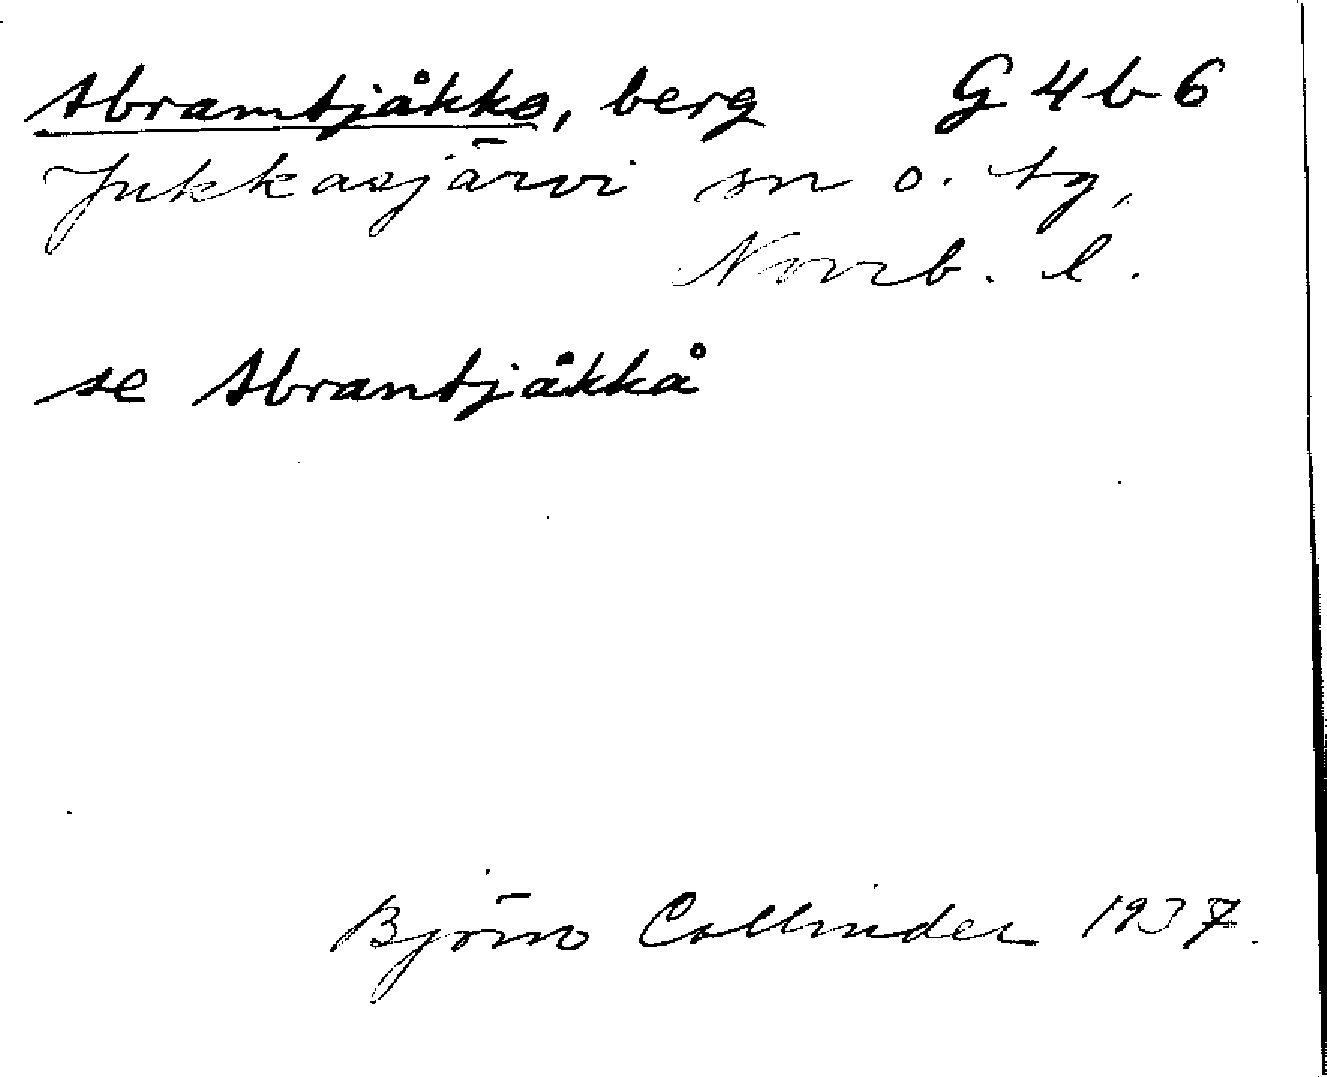 Abramtjåkko, berg G 4 b 6
Jukkasjärvi sn o. tg,
Norrb. l.
se Abrantjåkkå
Björn Collinder 1937.